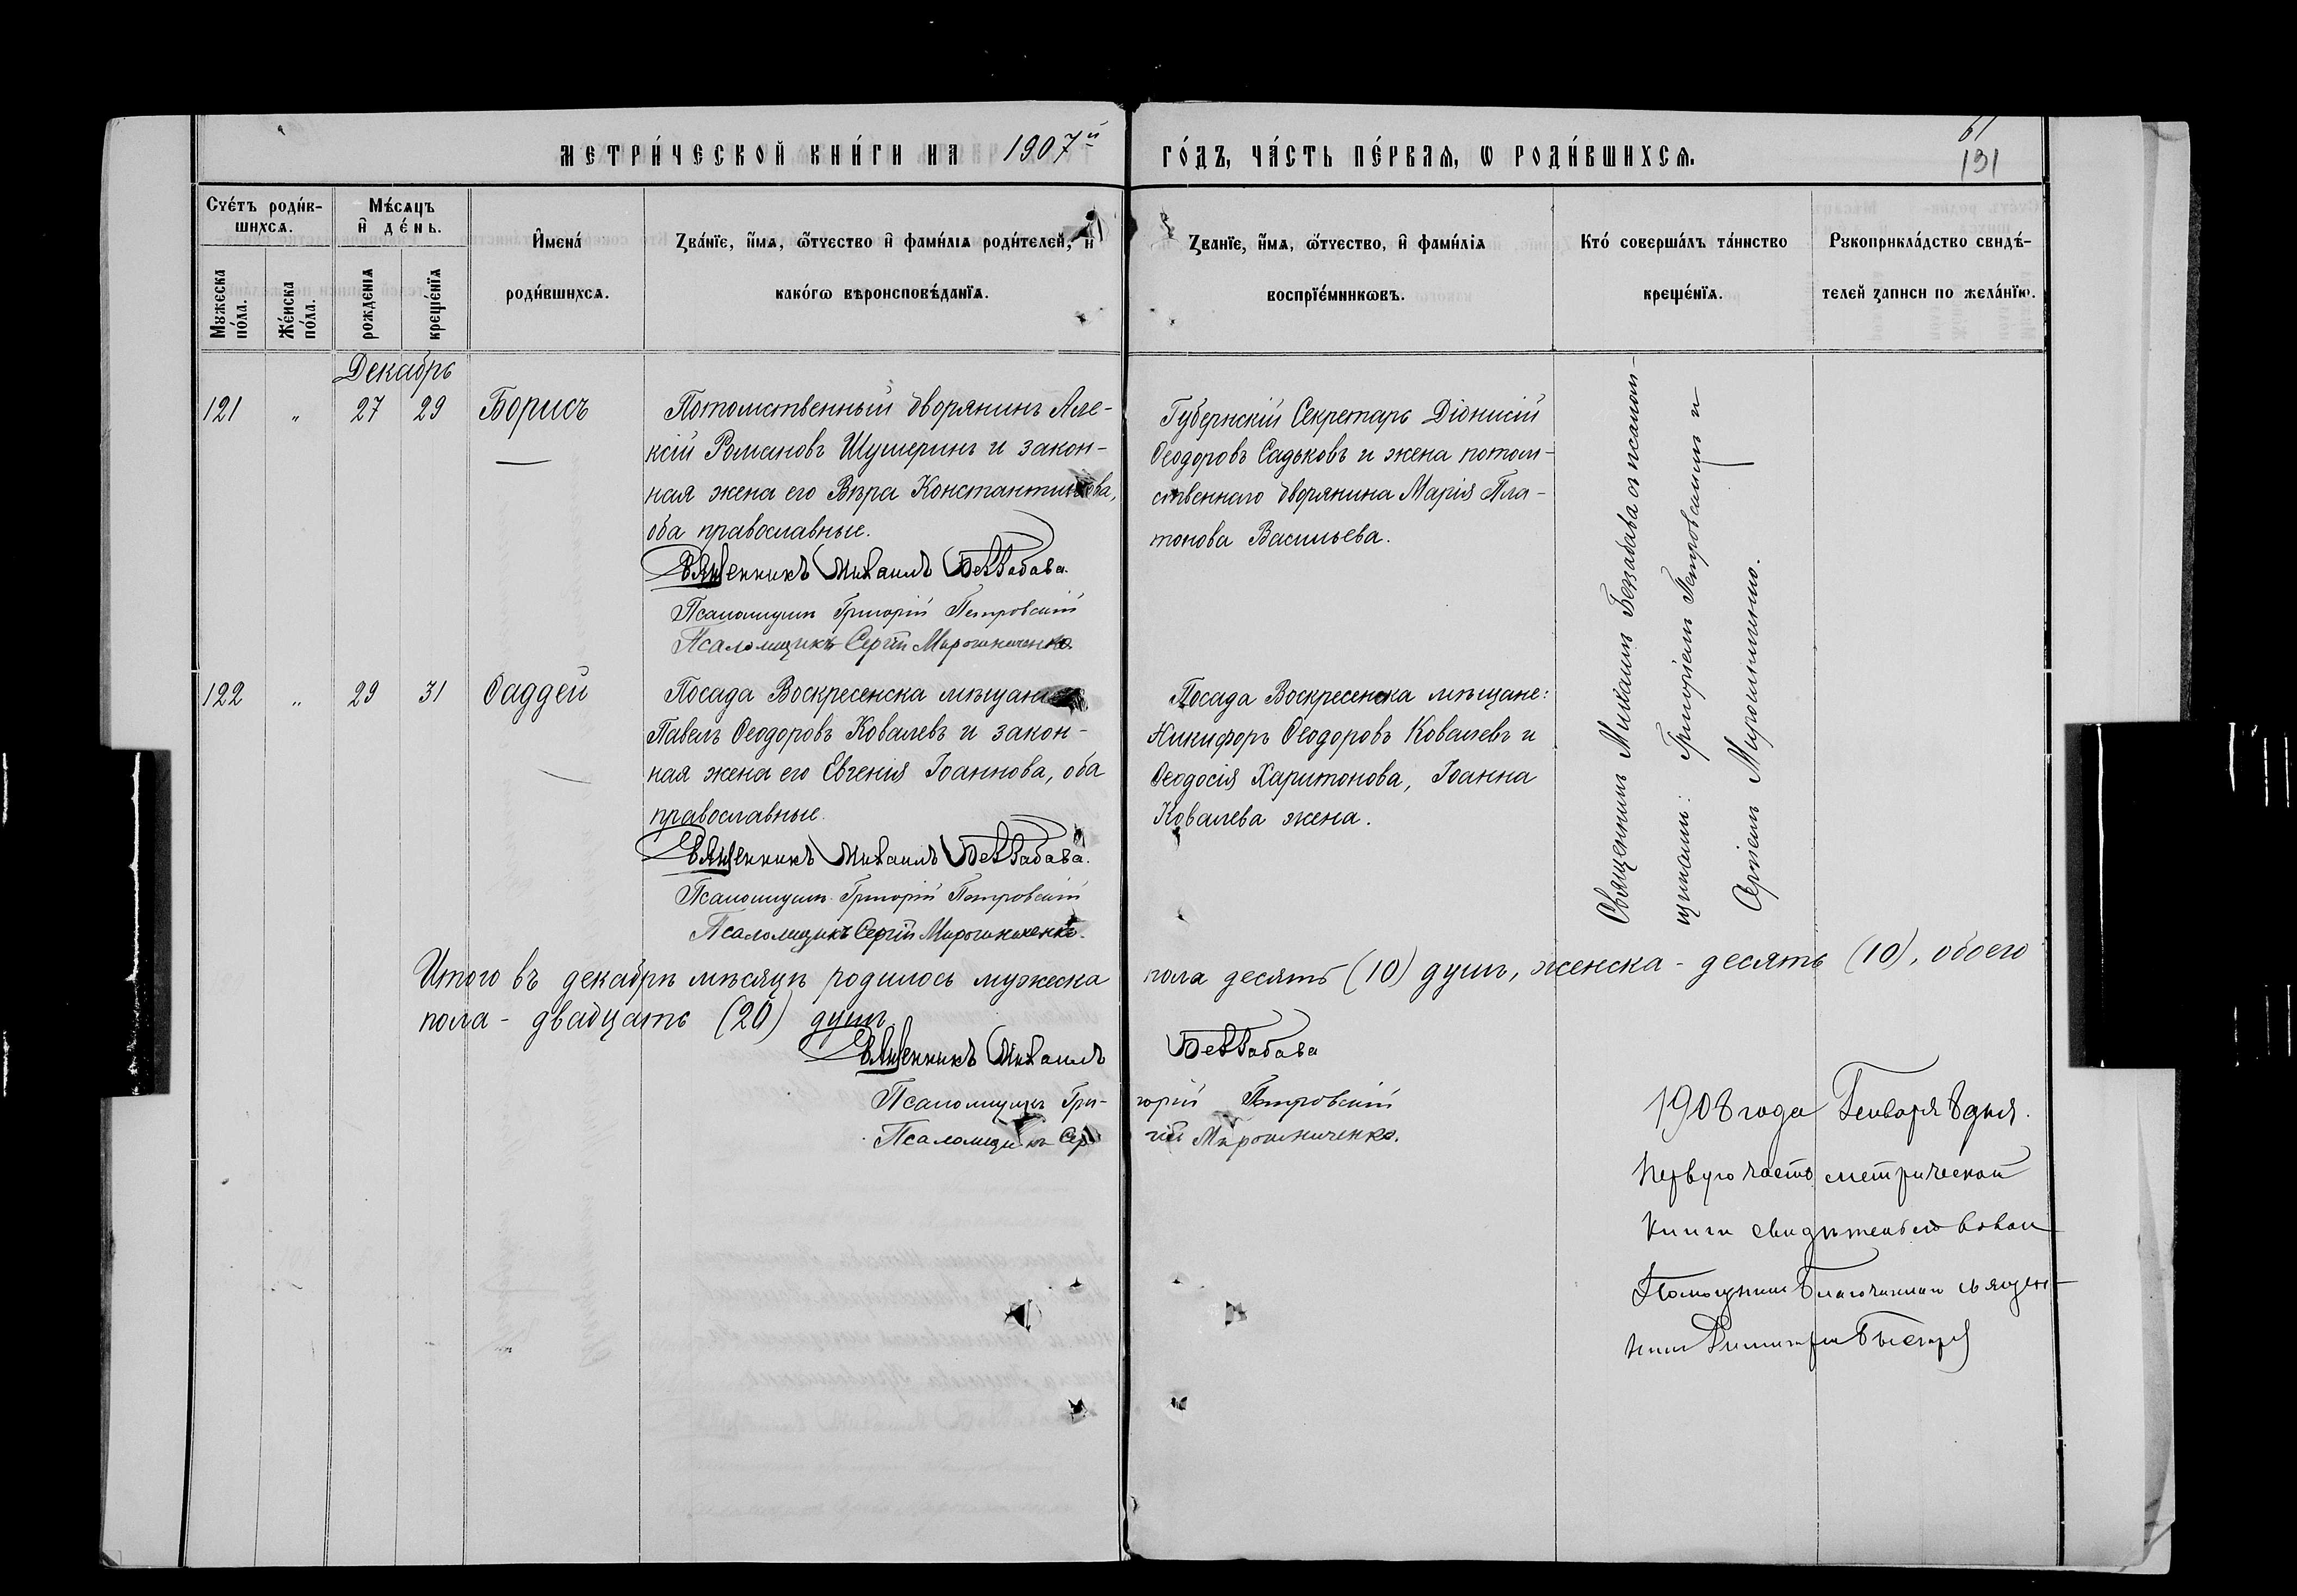 МЕТРИ́ЧЕСКОЙ КНИ́ГИ НА 1907й
ГО́ДЪ, ЧА́СТЬ ПЕ́РВАѦ, Ѡ РОДИ́ВШИХСѦ.
61
131
Сче́тъ роди́в-
шихсѧ.
Мꙋжеска по́ла.
Же́нска по́ла.
Мѣ́сѧцъ
и҆ де́нь.
рожде́нїѧ
креще́нїѧ
И҆мена́
роди́вшихсѧ.
Зва́нїе, и҆́мѧ, ѻ҆́тчество и҆ фами́лїѧ роди́телей, и҆
како́гѡ вѣроисповѣ́данїѧ.
Зва́нїе, и҆́мѧ, ѻ҆́тчество, и҆ фами́лїѧ
воспрїе́мникѡвъ.
Кто́ соверша́лъ та́инство
креще́нїѧ.
Рꙋкоприкла́дство свидѣ́-
телей записи по жела́нїю.
Декабрь
121 „ 27 29 Борисъ
Потомственный дворянинъ Але-
ксій Романовъ Шушеринъ и закон-
ная жена его Вѣра Константинова,
оба православные.
Священникъ Михаилъ Беззабава.
Псаломщикъ Григорій Петровскій
Псаломщикъ Сергій Мирошниченко.
Губернскій Секретарь Діонисій
Ѳеодоровъ Садьковъ и жена потом-
ственнаго дворянина Марія Пла-
тонова Васильева.
122 „ 29 31 Ѳаддей
Посада Воскресенска мѣщанинъ
Павелъ Ѳеодоровъ Ковалевъ и закон-
ная жена его Евгенія Іоаннова, оба
православные.
Священникъ Михаилъ Беззабава.
Псаломщикъ Григорій Петровскій
Псаломщикъ Сергій Мирошниченко.
Посада Воскресенска мѣщане:
Никифоръ Ѳеодоровъ Ковалевъ и
Ѳеодосія Харитонова, Іоанна
Ковалева жена.
Священникъ Михаилъ Беззабава съ псалом-
щиками: Григоріемъ Петровскимъ и
Сергіемъ Мирошниченко.
Итого въ декабрѣ мѣсяцѣ родилось мужеска пола десять (10) душъ, женска - десять (10), обоего
пола - двадцать (20) душъ.
Священникъ Михаилъ Беззабава
Псаломщикъ Григорій Петровскій
Псаломщикъ Сергій Мирошниченко.
1908 года Генваря 8 дня.
Первую часть метрической
книги свидѣтельствовалъ
Помощникъ Благочиннаго священ-
никъ Димитрій